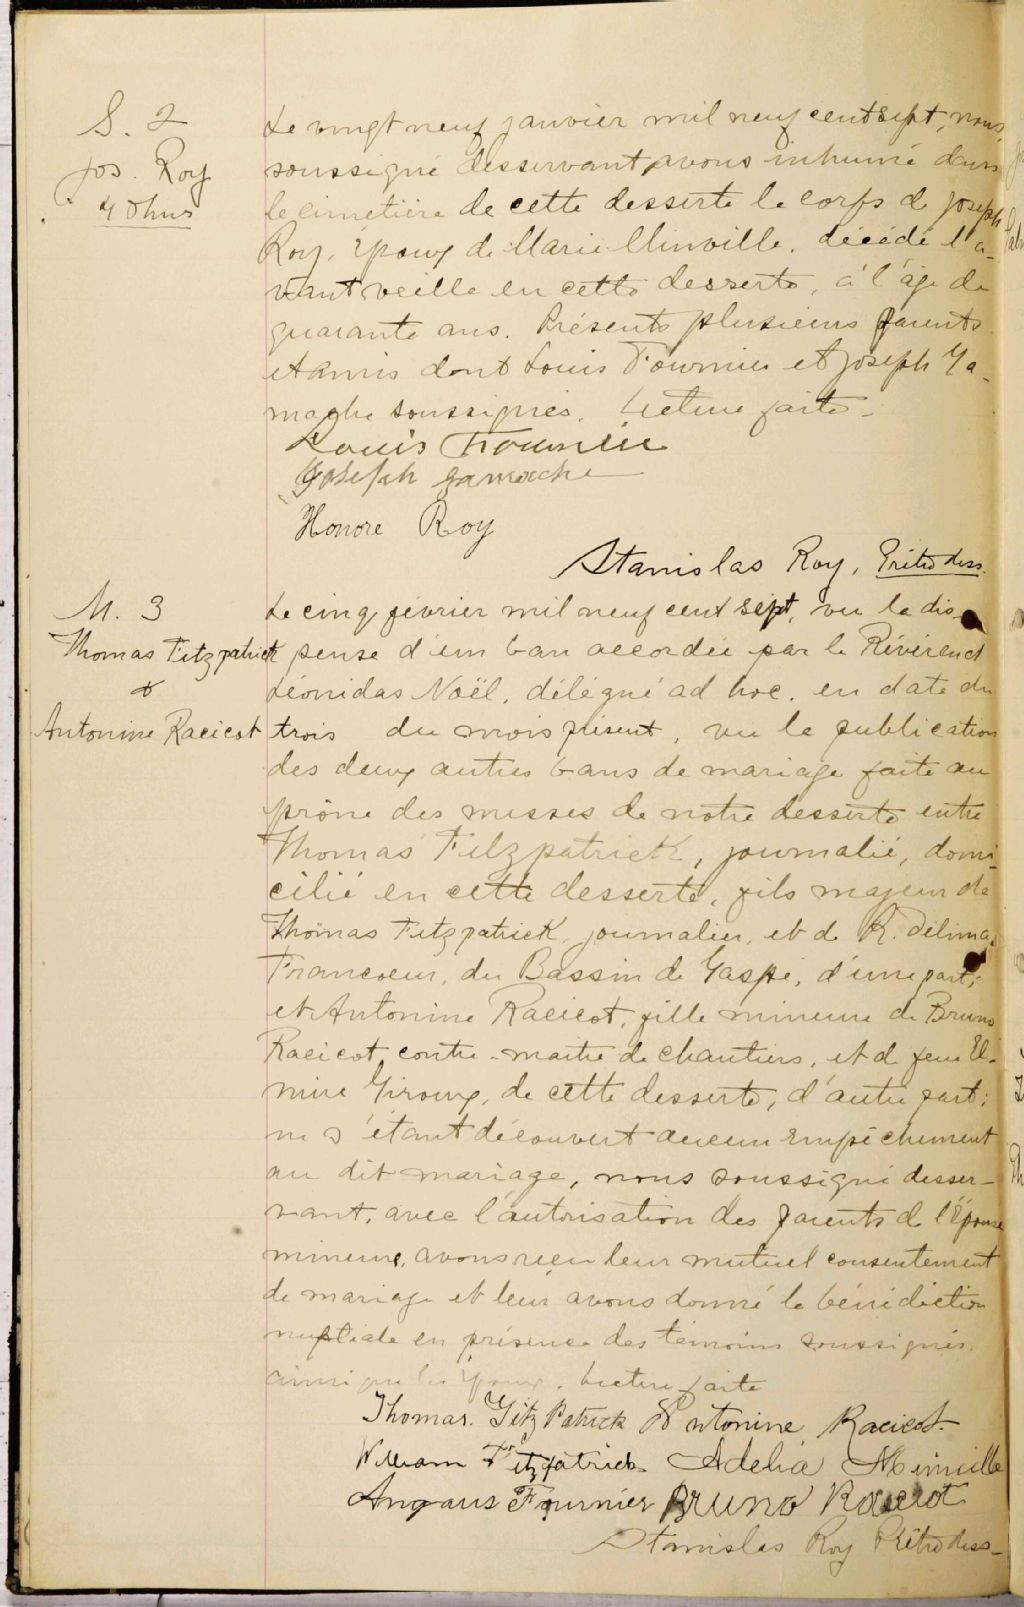 S. 2
Jos. Roy
40 ans
Le vingt neuf janvier mil neuf cent sept, nous,
soussigné desservant, avons inhumé dans
le cimetière de cette desserte le corps de Joseph
Roy, Époux de Marie Minville, décédé l'a-
vant veille en cette desserte, à l'âge de
quarante ans. Présents plusieurs parents
et amis dont Louis Fournier et Joseph Ga-
mache soussignés. Lecture faite.
Louis Fournier
Joseph Gamache
Honore Roy
Stanislas Roy, Prêtre dess.
M. 3
Thomas Fitzpatrick
&
Antonine Racicot
Le cinq février mil neuf cent sept, vu la dis-
pense d'un ban accordée par le Révérend
Léonidas Noël, délégué ad hoc, en date du
trois du mois présent, vu la publication
des deux autres bans de mariage faite au
prône des messes de notre desserte entre
Thomas Fitzpatrick, journalié, domi-
cilié en cette desserte, fils majeur de
Thomas Fitzpatrick, journalier, et de R. Délima
Francoeur, du Bassin de Gaspé, d'une part;
et Antonine Racicot, fille mineure de Bruno
Racicot, contre-maître de chantiers, et de feue El-
mire Giroux, de cette desserte, d'autre part;
ne s'étant découvert aucun empêchement
au dit mariage, nous soussigné desser-
vant, avec l'autorisation des parents de l'Épouse
mineure, avons reçu leur mutuel consentement
de mariage et leur avons donné la bénédiction
nuptiale en présence des témoins soussignés,
ainsi que les Époux. Lecture faite
Thomas. FitzPatrick Antonine Racicot
William Fitzpatrick Adelia Minville
Angaus Fournier Bruno Racicot
Stanislas Roy Prêtre dess.